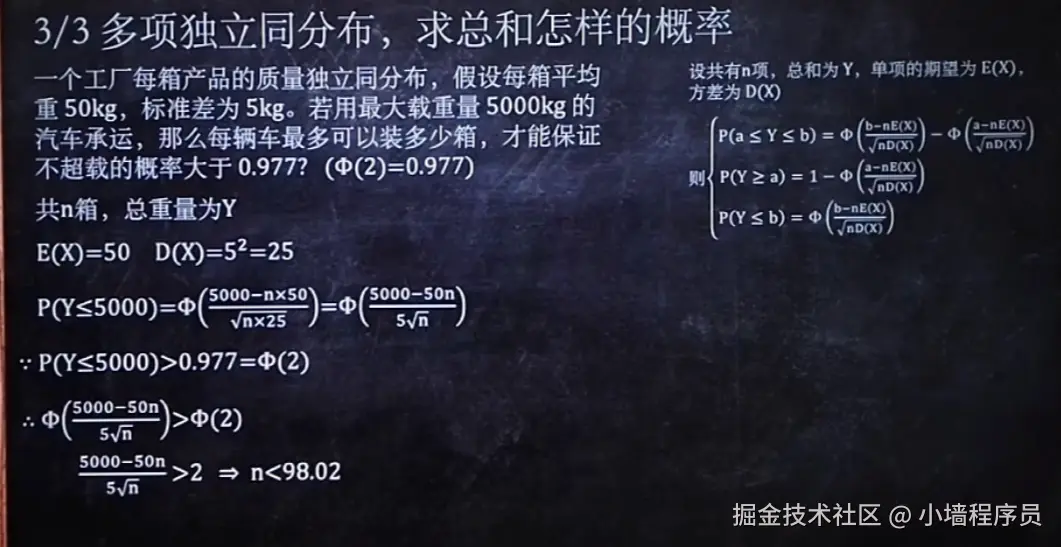 3/3 多项独立同分布，求总和怎样的概率
一个工厂每箱产品的质量独立同分布，假设每箱平均
重 50kg，标准差为 5kg。若用最大载重量 5000kg 的
汽车承运，那么每辆车最多可以装多少箱，才能保证
不超载的概率大于 0.977？（Φ(2)=0.977）
共n箱，总重量为Y
E(X)=50 D(X)=5²=25
P(Y≤5000)=Φ((5000−n×50)/√(n×25))=Φ((5000−50n)/(5√n))
∵ P(Y≤5000)>0.977=Φ(2)
∴ Φ((5000−50n)/(5√n))>Φ(2)
(5000−50n)/(5√n)>2 ⇒ n<98.02
设共有n项，总和为 Y，单项的期望为 E(X)，
方差为 D(X)
P(a ≤ Y ≤ b) = Φ((b−nE(X))/√(nD(X))) − Φ((a−nE(X))/√(nD(X)))
则 P(Y ≥ a) = 1 − Φ((a−nE(X))/√(nD(X)))
P(Y ≤ b) = Φ((b−nE(X))/√(nD(X)))
掘金技术社区 @ 小墙程序员